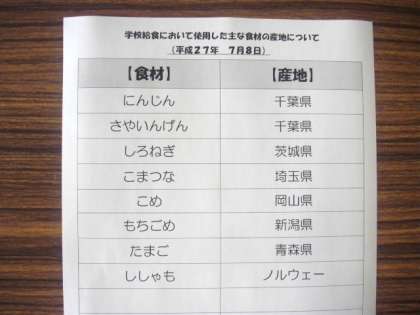 学校給食において使用した主な食材の産地について
（平成２７年　７月８日）
【食材】　【産地】
にんじん　千葉県
さやいんげん　千葉県
しろねぎ　茨城県
こまつな　埼玉県
こめ　岡山県
もちごめ　新潟県
たまご　青森県
ししゃも　ノルウェー